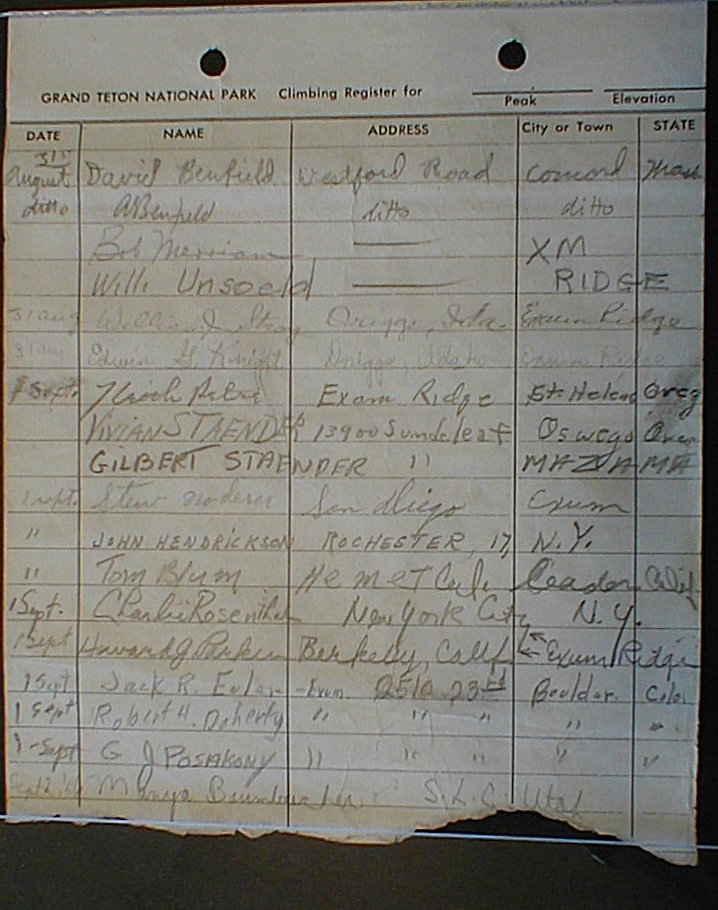 GRAND TETON NATIONAL PARK Climbing Register for Peak Elevation
DATE NAME ADDRESS City or Town STATE
31st August David Benfield Westford Road Concord Mass
ditto ABenfield ditto ditto
Bob Merriam XM
Willi Unsoeld RIDGE
31 aug Willis J. Driggs, Exum Ridge
31 Edwin G. Knight Driggs, Idaho Exum Ridge
1 Sept. Exum Ridge St. Helens Oreg
VIVIAN STAENDER 13900 Sundeleaf Oswego Ore
GILBERT STAENDER " MAZAMA
1 sept. San diego Exum
" JOHN HENDRICKSON ROCHESTER, 17, N.Y.
" Tom Blum Hemet Calif
1 Sept. Charlie Rosenthal New York City N.Y.
1 sept Howard J Parker Berkeley, Calif Exum Ridge
1 Sept Jack R. 2510 23rd Boulder Colo
1 Sept Robert H. Doherty " " " " "
1-Sept G J POSAKONY " " " " "
Sept 2, S.L.C. Utah